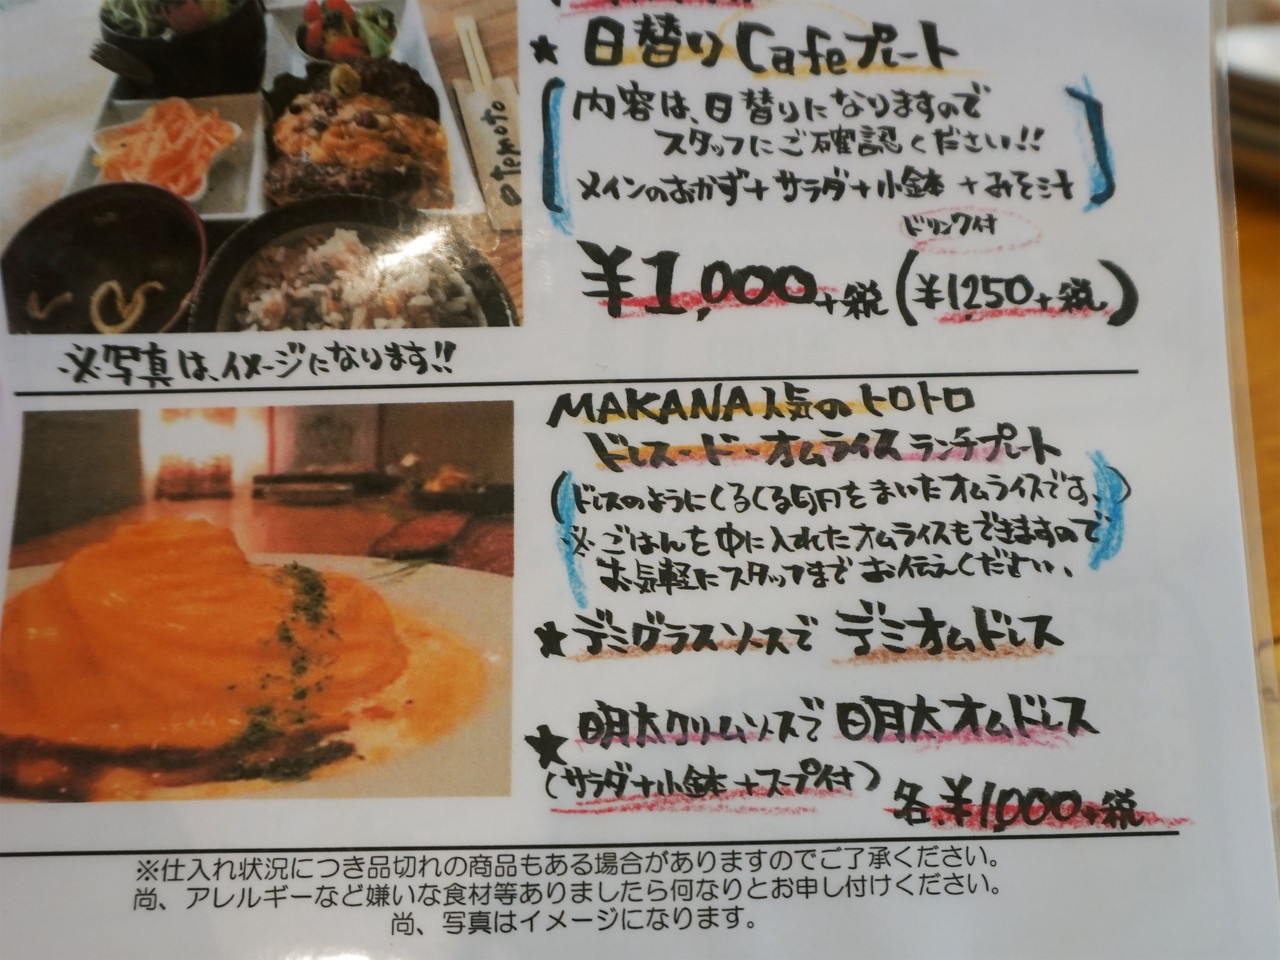 ★ 日替りCafeプレート
内容は、日替りになりますので
スタッフにご確認ください!!
メインのおかず+サラダ+小鉢+みそ汁
ドリンク付
¥1,000+税(¥1,250+税)
otemoto
※写真は、イメージになります!!
MAKANA人気のトロトロ
ドレス・ド・オムライスランチプレート
(ドレスのようにくるくる卵をまいたオムライスです。)
※ごはんを中に入れたオムライスもできますので
お気軽にスタッフまでお伝えください。
★デミグラスソースでデミオムドレス
★明太クリームソースで明太オムドレス
(サラダ+小鉢+スープ付)
各¥1,000+税
※仕入れ状況につき品切れの商品もある場合がありますのでご了承ください。
尚、アレルギーなど嫌いな食材等ありましたら何なりとお申し付けください。
尚、写真はイメージになります。